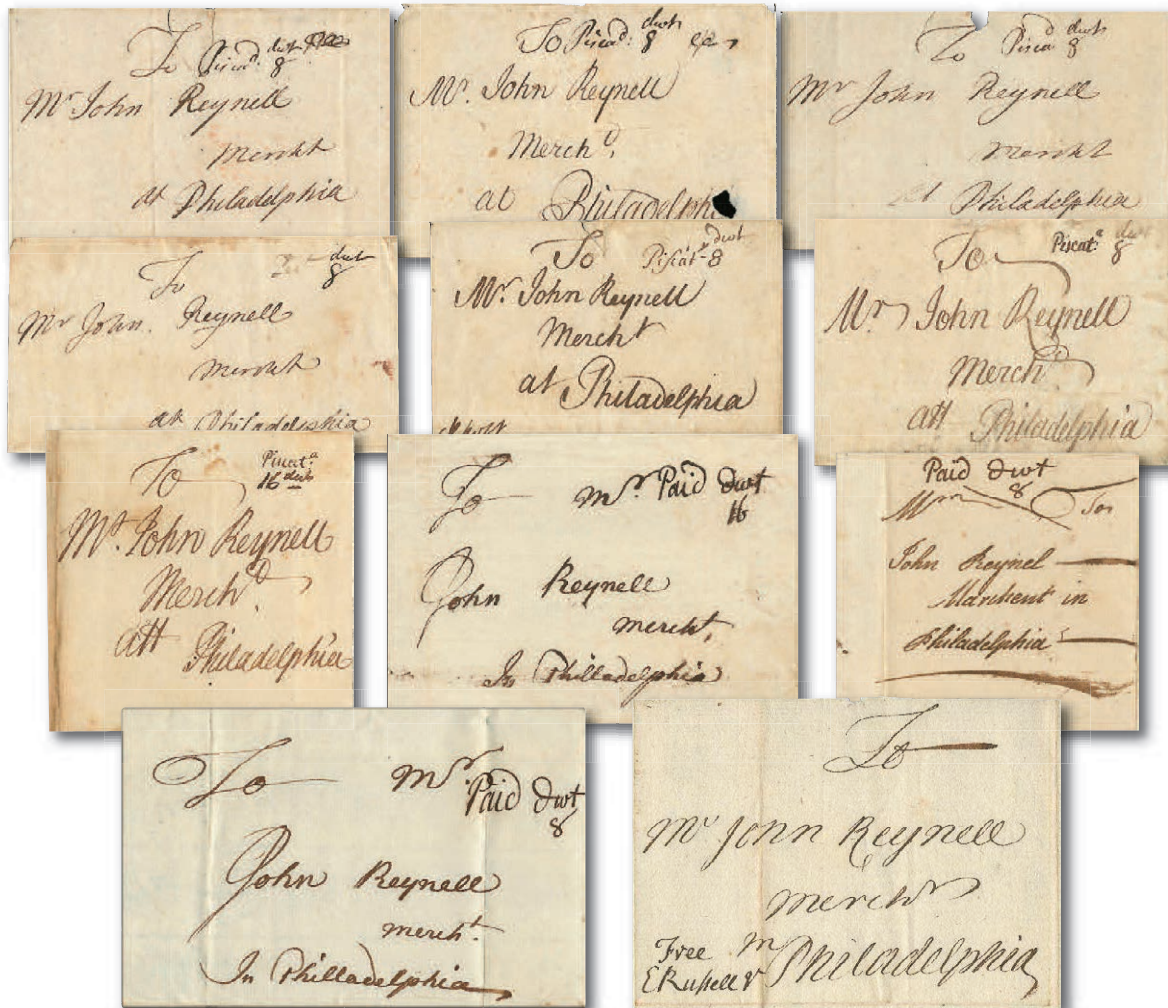 To Piscad: dwts 8
Mr John Reynell
Mercht
at Philadelphia
To Piscad: dwts 8
Mr. John Reynell
Merchd.
at Philadelphi
To Piscad dwts 8
Mr John Reynell
Mercht
at Philadelphia
To dwt 8
Mr John Reynell
Mercht
at Philadelphia
To Piscata dwt 8
Mr. John Reynell
Mercht
at Philadelphia
To Piscata: dwt 8
Mr John Reynell
Merchd
att Philadelphia
To Piscata: 16 dwts
Mr. John Reynell
Merchd.
att Philadelphia
To Mr. Paid dwt 16
John Reynell
mercht.
In Philladelphia
Paid dwt 8
To
John Reynel
Marchent in
Philadelphia
To Mr. Paid dwt 8
John Reynell
mercht.
In Philladelphia
To
Mr John Reynell
Mercht
Free In Philadelphia
E Russell